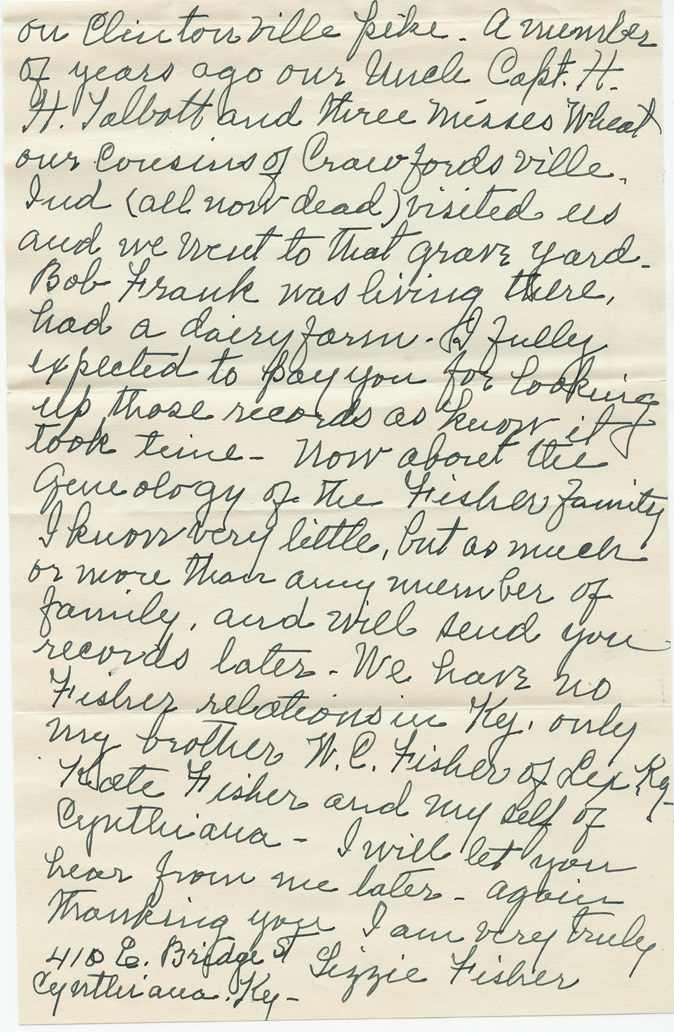 on Clintonville pike. A number
of years ago our Uncle Capt. H.
H. Talbott and three Misses Wheat
our cousins of Crawfordsville,
Ind (all now dead) visited us
and we went to that grave yard-
Bob Frank was living there,
had a dairy farm. I fully
expected to pay you for looking
up those records as know it
took time - Now about the
Geneology of the Fisher family
I know very little, but as much
or more than any member of
family, and will send you
records later - We have no
Fisher relations in Ky, only
my brother W. C. Fisher of Lex, Ky-
Kate Fisher and my self of
Cynthiana - I will let you
hear from me later - again
thanking you I am very truly
Lizzie Fisher
410 E. Bridge St
Cynthiana. Ky-